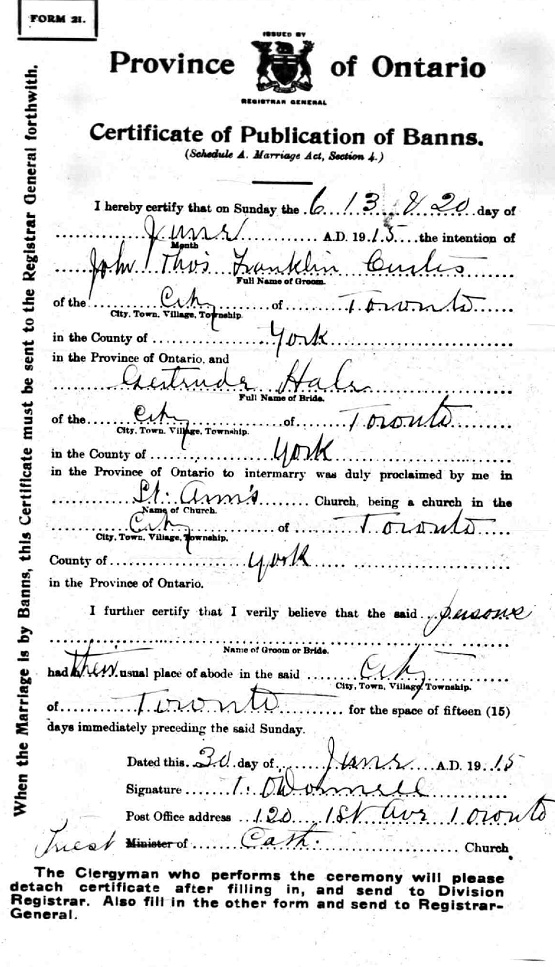 FORM 21.
ISSUED BY
Province of Ontario
REGISTRAR GENERAL
Certificate of Publication of Banns.
(Schedule A. Marriage Act, Section 4.)
I hereby certify that on Sunday the 6, 13 & 20 day of
June A.D. 1915 the intention of
Month
John Thos Franklin Curtis
Full Name of Groom.
of the City of Toronto
City. Town. Village, Township.
in the County of York
in the Province of Ontario, and
Gertrude Hale
Full Name of Bride.
of the City of Toronto
City. Town. Village, Township.
in the County of York
in the Province of Ontario to intermarry was duly proclaimed by me in
St. Ann's Church, being a church in the
Name of Church.
City of Toronto
City, Town, Village, Township.
County of York
in the Province of Ontario.
I further certify that I verily believe that the said persons
Name of Groom or Bride.
had their usual place of abode in the said City
City, Town, Village, Township.
of Toronto for the space of fifteen (15)
days immediately preceding the said Sunday.
Dated this 30 day of June A.D. 1915
Signature O'Donnell
Post Office address 120 1st Ave Toronto
Priest Minister of Cath. Church,
The Clergyman who performs the ceremony will please
detach certificate after filling in, and send to Division
Registrar. Also fill in the other form and send to Registrar-
General.
When the Marriage is by Banns, this Certificate must be sent to the Registrar General forthwith.